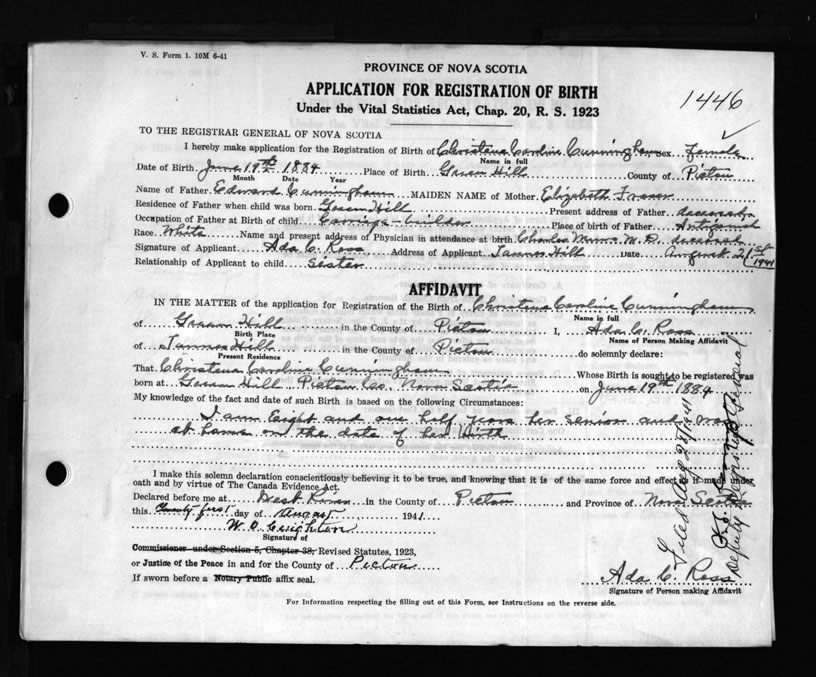 V. S. Form 1. 10M 6-41
PROVINCE OF NOVA SCOTIA
APPLICATION FOR REGISTRATION OF BIRTH
Under the Vital Statistics Act, Chap. 20, R. S. 1923
1446
TO THE REGISTRAR GENERAL OF NOVA SCOTIA
I hereby make application for the Registration of Birth of Christena Caroline Cunningham sex Female
Name in full
Date of Birth June 19th 1884 Place of Birth Green Hill County of Pictou
Month Date Year
Name of Father Edward Cunningham MAIDEN NAME of Mother Elizabeth Fraser
Residence of Father when child was born Green Hill Present address of Father deceased
Occupation of Father at Birth of child Carriage-builder Place of birth of Father Antigonish
Race White Name and present address of Physician in attendance at birth Charles Munro M.D. deceased
Signature of Applicant Ada C. Ross Address of Applicant Hill Date August 21st 1941
Relationship of Applicant to child Sister
AFFIDAVIT
IN THE MATTER of the application for Registration of the Birth of Christena Caroline Cunningham
Name in full
of Green Hill in the County of Pictou I, Ada C. Ross
Birth Place Name of Person Making Affidavit
of Hill in the County of Pictou do solemnly declare:
Present Residence
That Christena Caroline Cunningham Whose Birth is sought to be registered was
born at Green Hill Pictou Co. Nova Scotia on June 19th 1884
My knowledge of the fact and date of such Birth is based on the following Circumstances:
I am Eight and one half years her senior and was
at home on the date of her birth
I make this solemn declaration conscientiously believing it to be true, and knowing that it is of the same force and effect as if made under
oath and by virtue of The Canada Evidence Act.
Declared before me at West River in the County of Pictou and Province of Nova Scotia
this Twenty first day of August 1941
W. O. Creighton
Signature of
Commissioner under Section 5, Chapter 38, Revised Statutes, 1923,
or Justice of the Peace in and for the County of Pictou
If sworn before a Notary Public affix seal.
Ada C. Ross
Signature of Person making Affidavit
For Information respecting the filling out of this Form, see Instructions on the reverse side.
Filed Aug 28/41
Deputy Registrar General